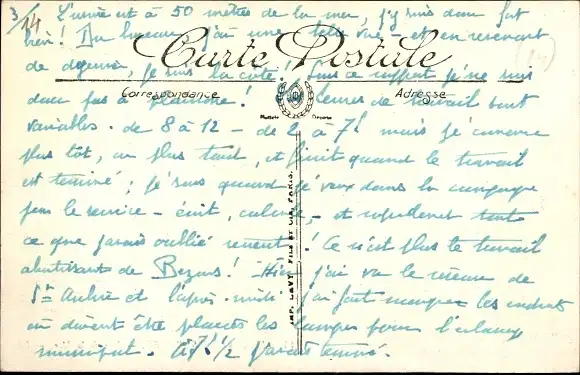 3/14 L'usine est à 50 mètres de la mer, j'y suis donc fort
bien! Du bureau j'ai une belle vue - et en revenant
Carte Postale
de déjeuner, je suis la côte! Sous ce rapport je ne suis
Correspondance Adresse
donc pas à plaindre! heures de travail sont
Modèle Déposé
variables - de 8 à 12 - de 2 à 7h mais je commence
plus tôt, ou plus tard, et finit quand le travail
est terminé; je sors quand je veux dans la campagne
pour le service - écrit, calcule, - et
ce que j'avais oublié revient! Ce n'est plus le travail
abrutissant de Bezons! Hier j'ai vu le réseau de
St Aubin et l'après-midi j'ai fait marquer les endroits
où doivent être placées les lampes pour l'éclairage
municipal. à 7h 1/2 j'avais terminé.
IMP. LEVY, FILS ET CIE, PARIS.